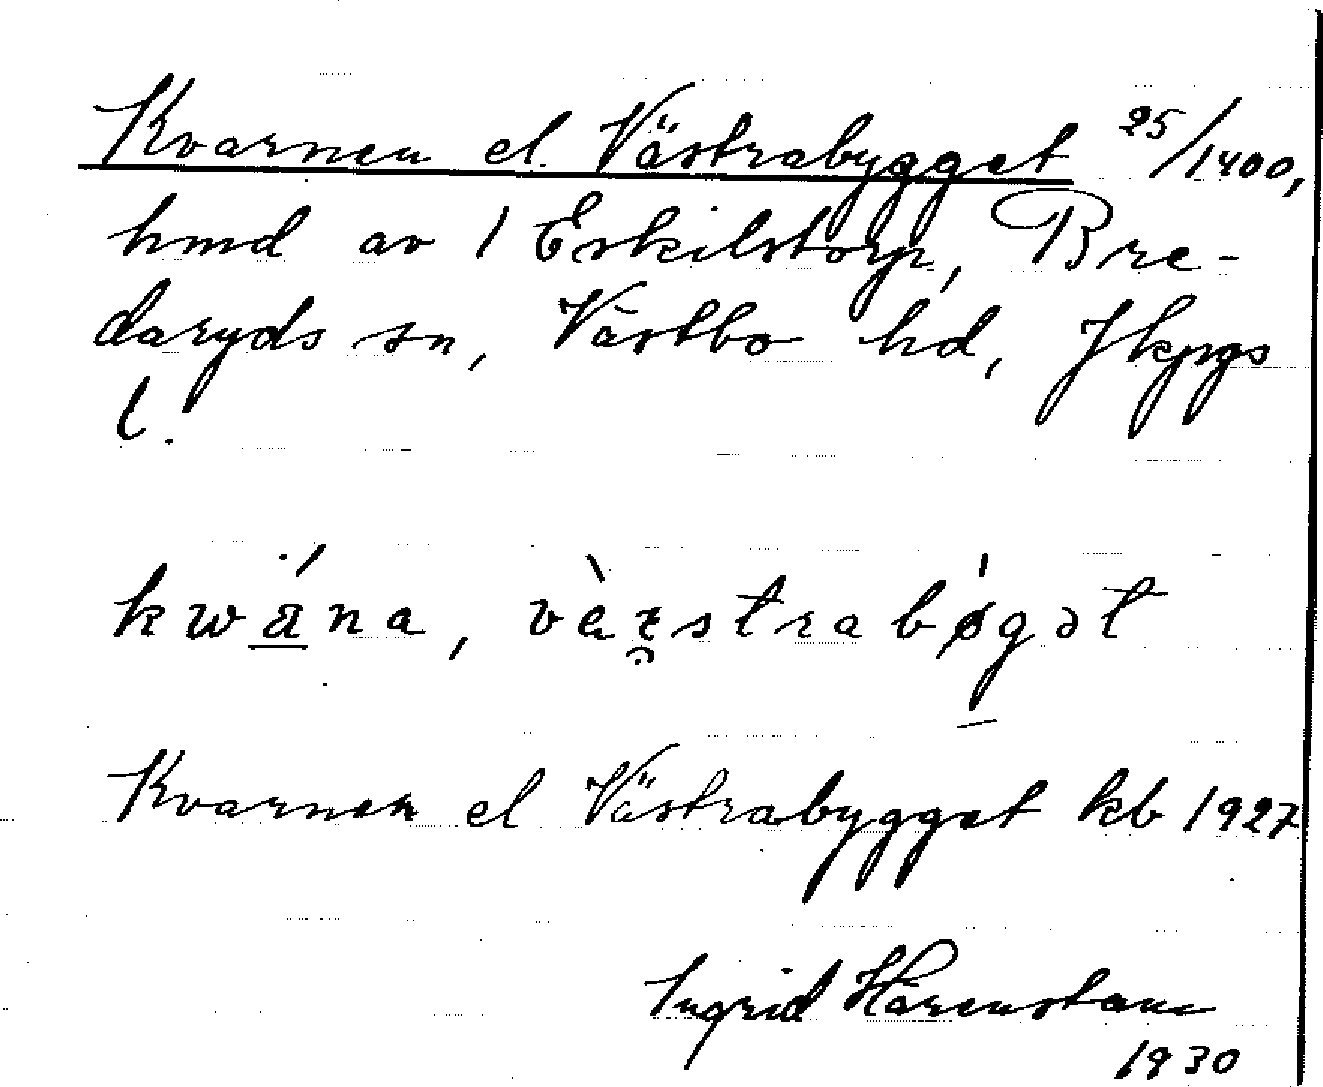 Kvarnen el. Västrabygget 25/1400,
hmd av 1 Eskilstorp, Bre-
daryds sn, Västbo hd, Jkpgs
l.
kwána, vàɛstrabøgət
Kvarnen el Västrabygget kb 1927
Ingrid Härenstam
1930